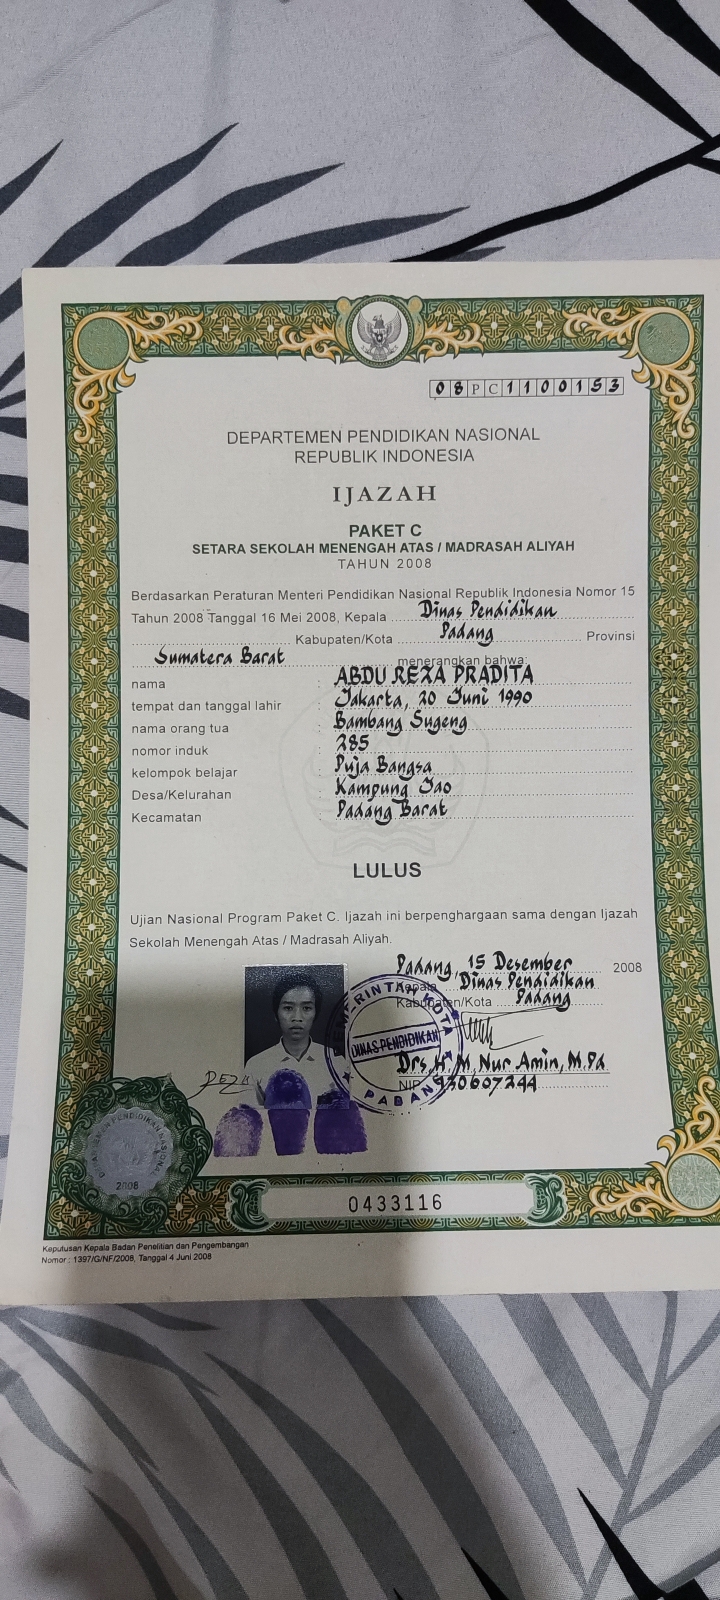 08PC1100153
DEPARTEMEN PENDIDIKAN NASIONAL
REPUBLIK INDONESIA
IJAZAH
PAKET C
SETARA SEKOLAH MENENGAH ATAS / MADRASAH ALIYAH
TAHUN 2008
Berdasarkan Peraturan Menteri Pendidikan Nasional Republik Indonesia Nomor 15
Tahun 2008 Tanggal 16 Mei 2008, Kepala Dinas Pendidikan
Kabupaten/Kota Padang Provinsi
Sumatera Barat menerangkan bahwa:
nama : ABDU REZA PRADITA
tempat dan tanggal lahir : Jakarta, 20 Juni 1990
nama orang tua : Bambang Sugeng
nomor induk : 285
kelompok belajar : Puja Bangsa
Desa/Kelurahan : Kampung Jao
Kecamatan : Padang Barat
LULUS
Ujian Nasional Program Paket C. Ijazah ini berpenghargaan sama dengan Ijazah
Sekolah Menengah Atas / Madrasah Aliyah.
Padang, 15 Desember 2008
Kepala Dinas Pendidikan
Kabupaten/Kota Padang
PEMERINTAH KOTA
DINAS PENDIDIKAN
PADANG
Drs. H. M. Nur Amin, M.Pd
NIP 930607244
DEPARTEMEN PENDIDIKAN NASIONAL
2008
0433116
Keputusan Kepala Badan Penelitian dan Pengembangan
Nomor : 1397/G/NF/2008, Tanggal 4 Juni 2008